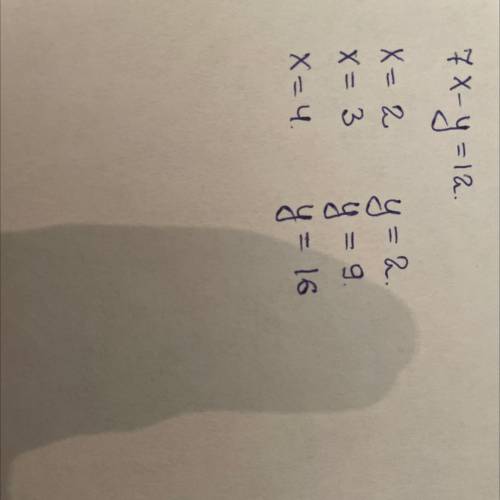 7x-y=12.
x=2 y=2.
x=3 y=9.
x=4. y=16